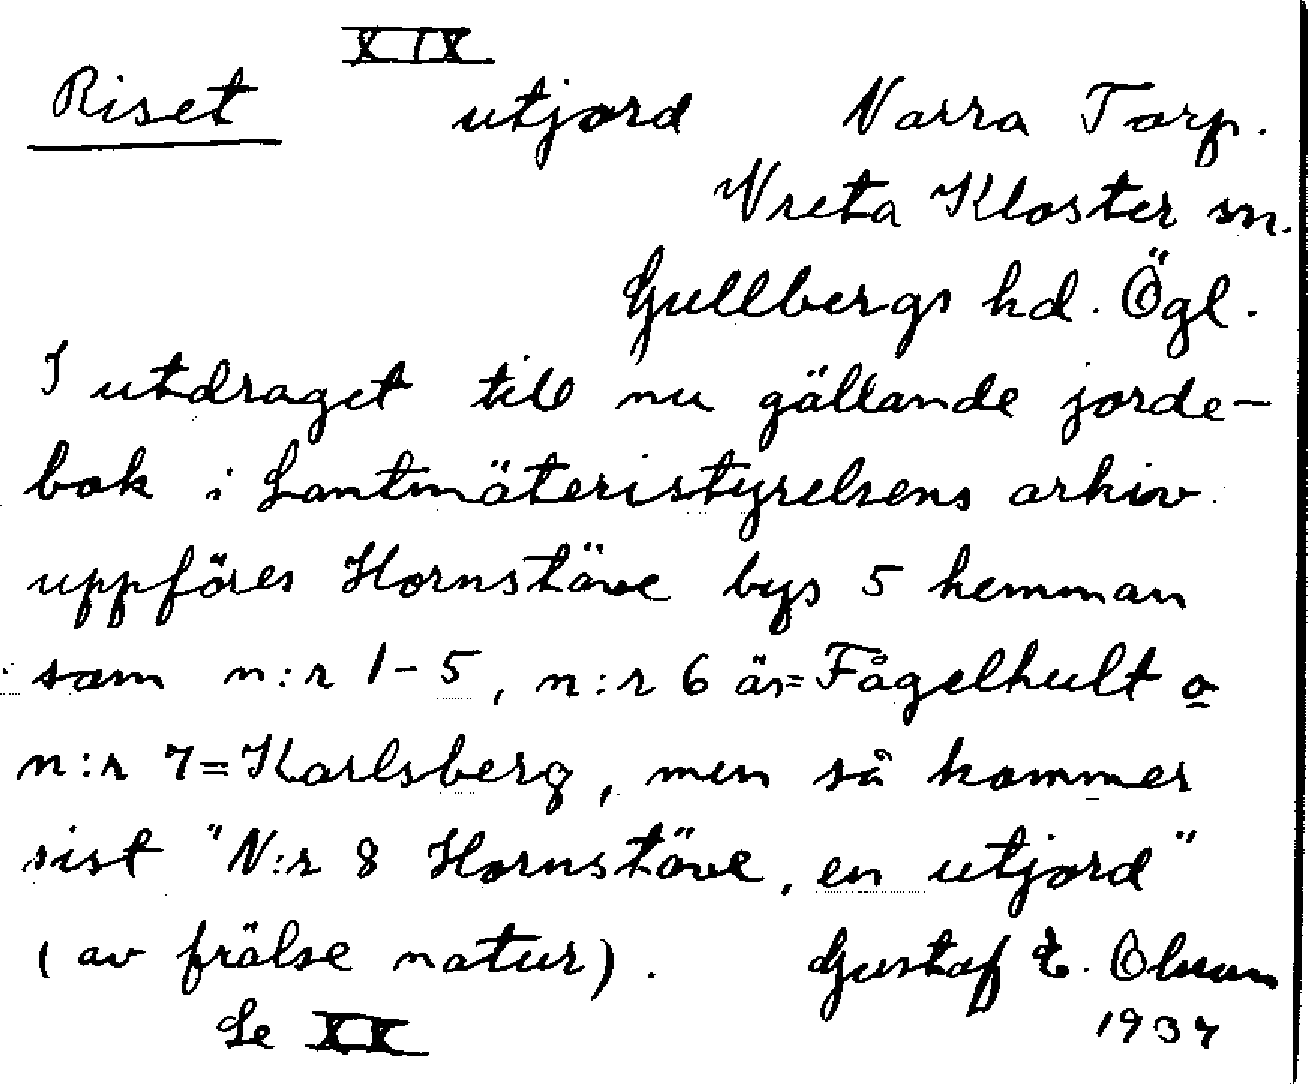 XIX
Riset utjord Narra Torp.
Vreta Kloster sn.
Gullbergs hd. Ögl.
I utdraget till nu gällande jorde-
bok i Lantmäteristyrelsens arkiv
uppföres Hornstäve bys 5 hemman
som n:r 1-5, n:r 6 är=Fågelhult o
n:r 7=Karlsberg, men så kommer
sist "N:r 8 Hornstäve, en utjord"
(av frälse natur). Gustaf E. Olsson
Se XX 1937